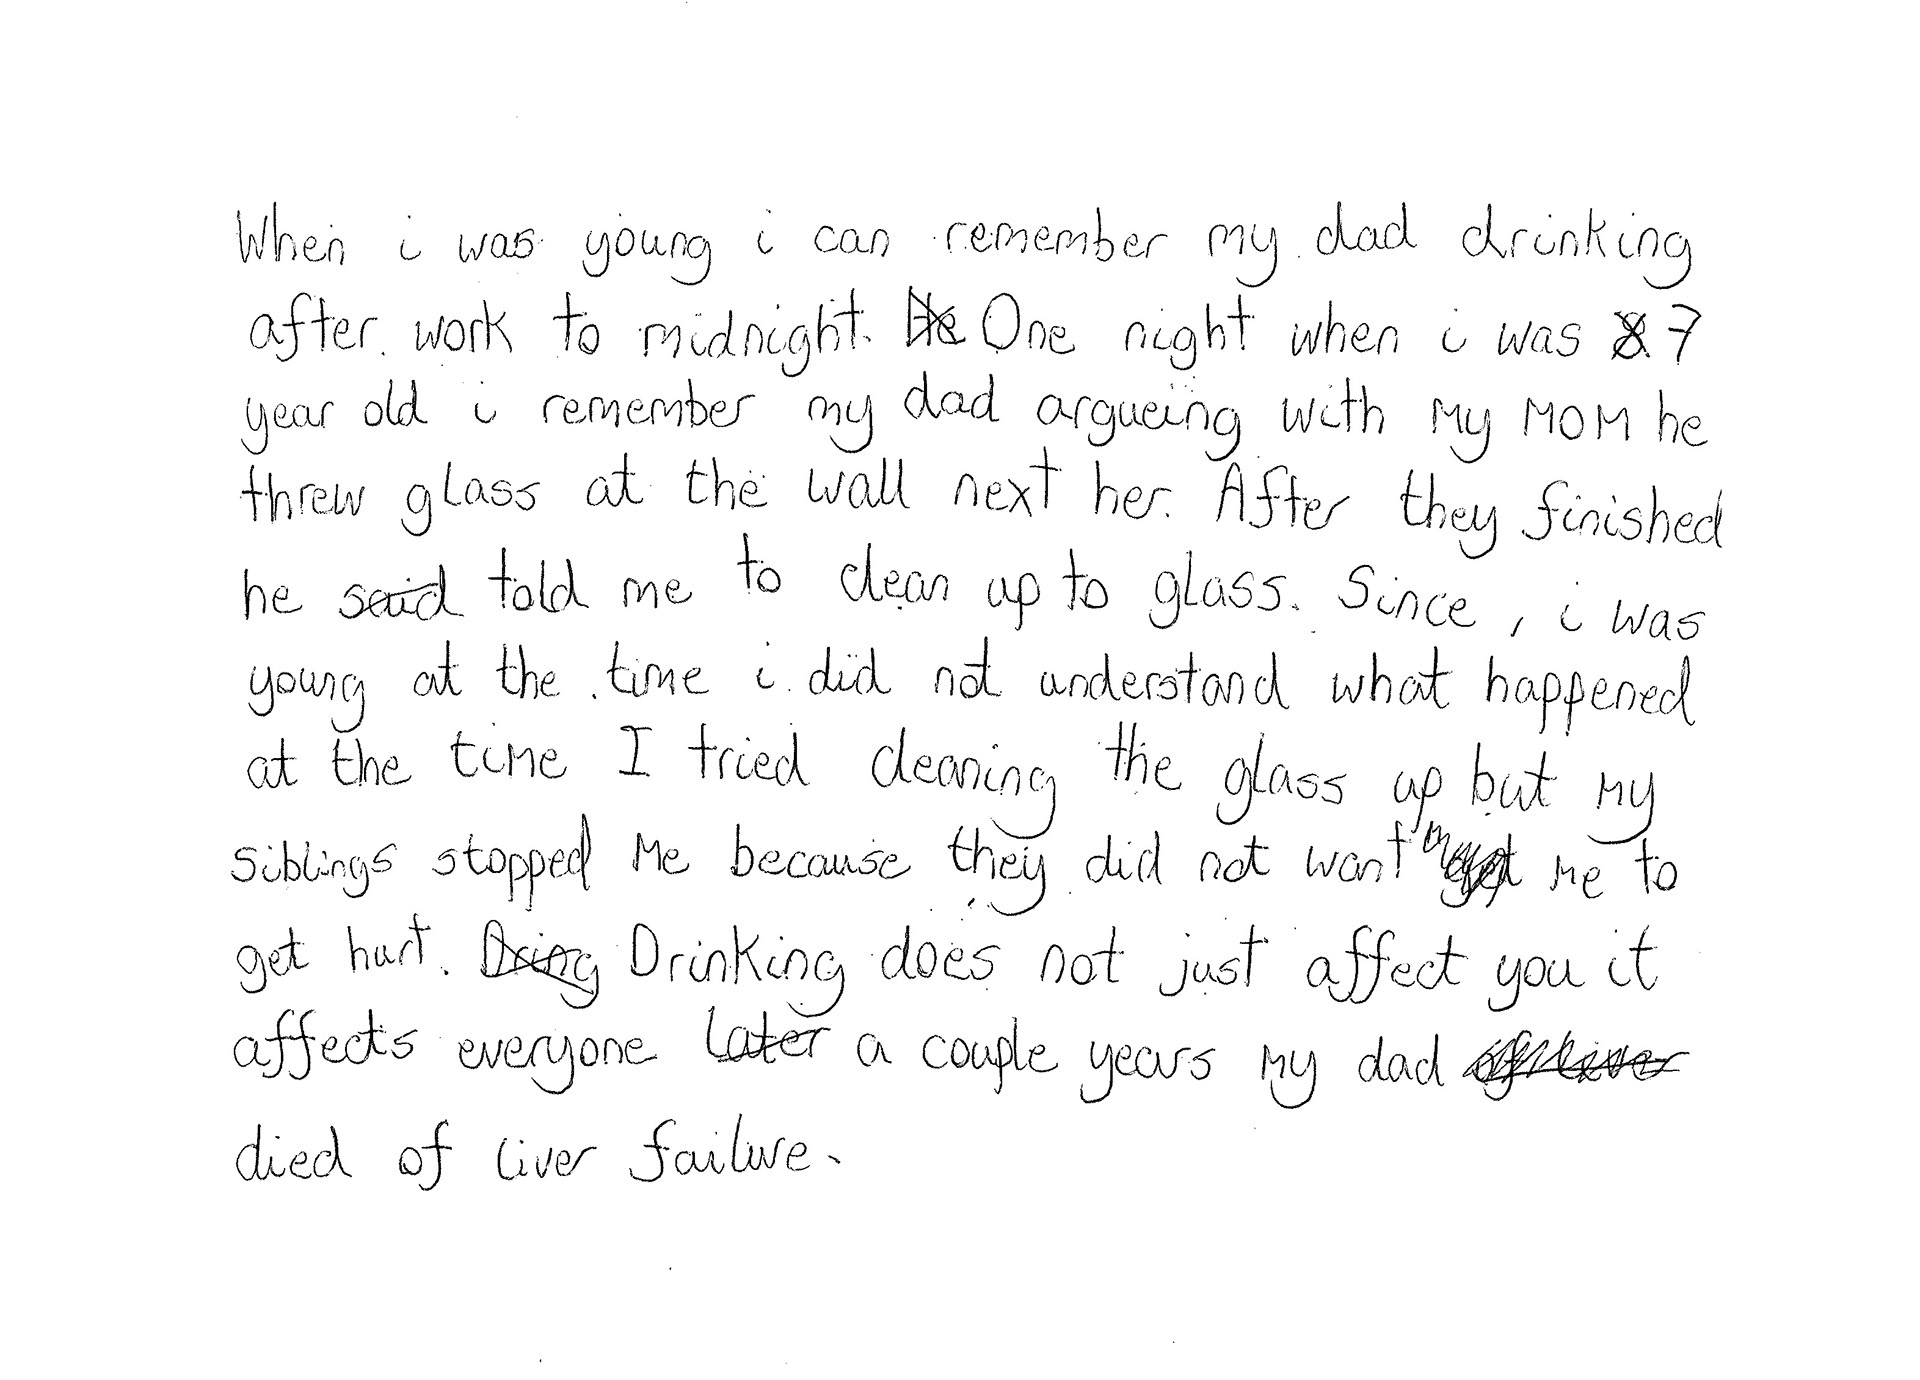 When i was young i can remember my dad drinking
after work to midnight. He One night when i was 8 7
year old i remember my dad argueing with my MOM he
threw glass at the wall next her. After they finished
he said told me to clean up to glass. Since, i was
young at the time i did not understand what happened
at the time I tried cleaning the glass up but my
siblings stopped me because they did not want me to
get hurt. Dring Drinking does not just affect you it
affects everyone later a couple years my dad of liver
died of liver failure.